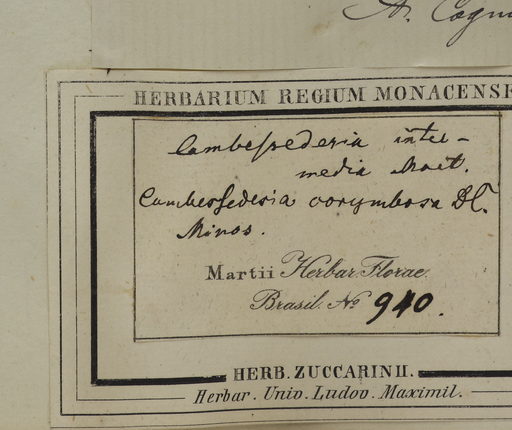 A. Cogn
HERBARIUM REGIUM MONACENSE
Cambessederia inter-
media Mart.
Cambessedesia corymbosa DC.
Minas.
Martii Herbar. Florae
Brasil. No 940.
HERB. ZUCCARINII.
Herbar. Univ. Ludov. Maximil.